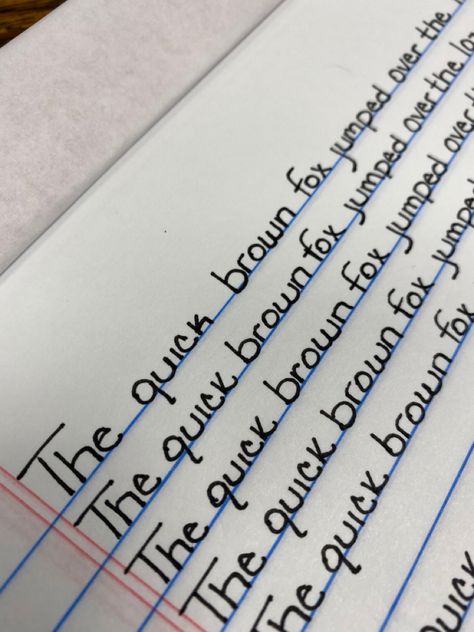 The quick brown fox jumped over the
The quick brown fox jumped over the
The quick brown fox jumped over
The quick brown fox jumped
The quick brown fox